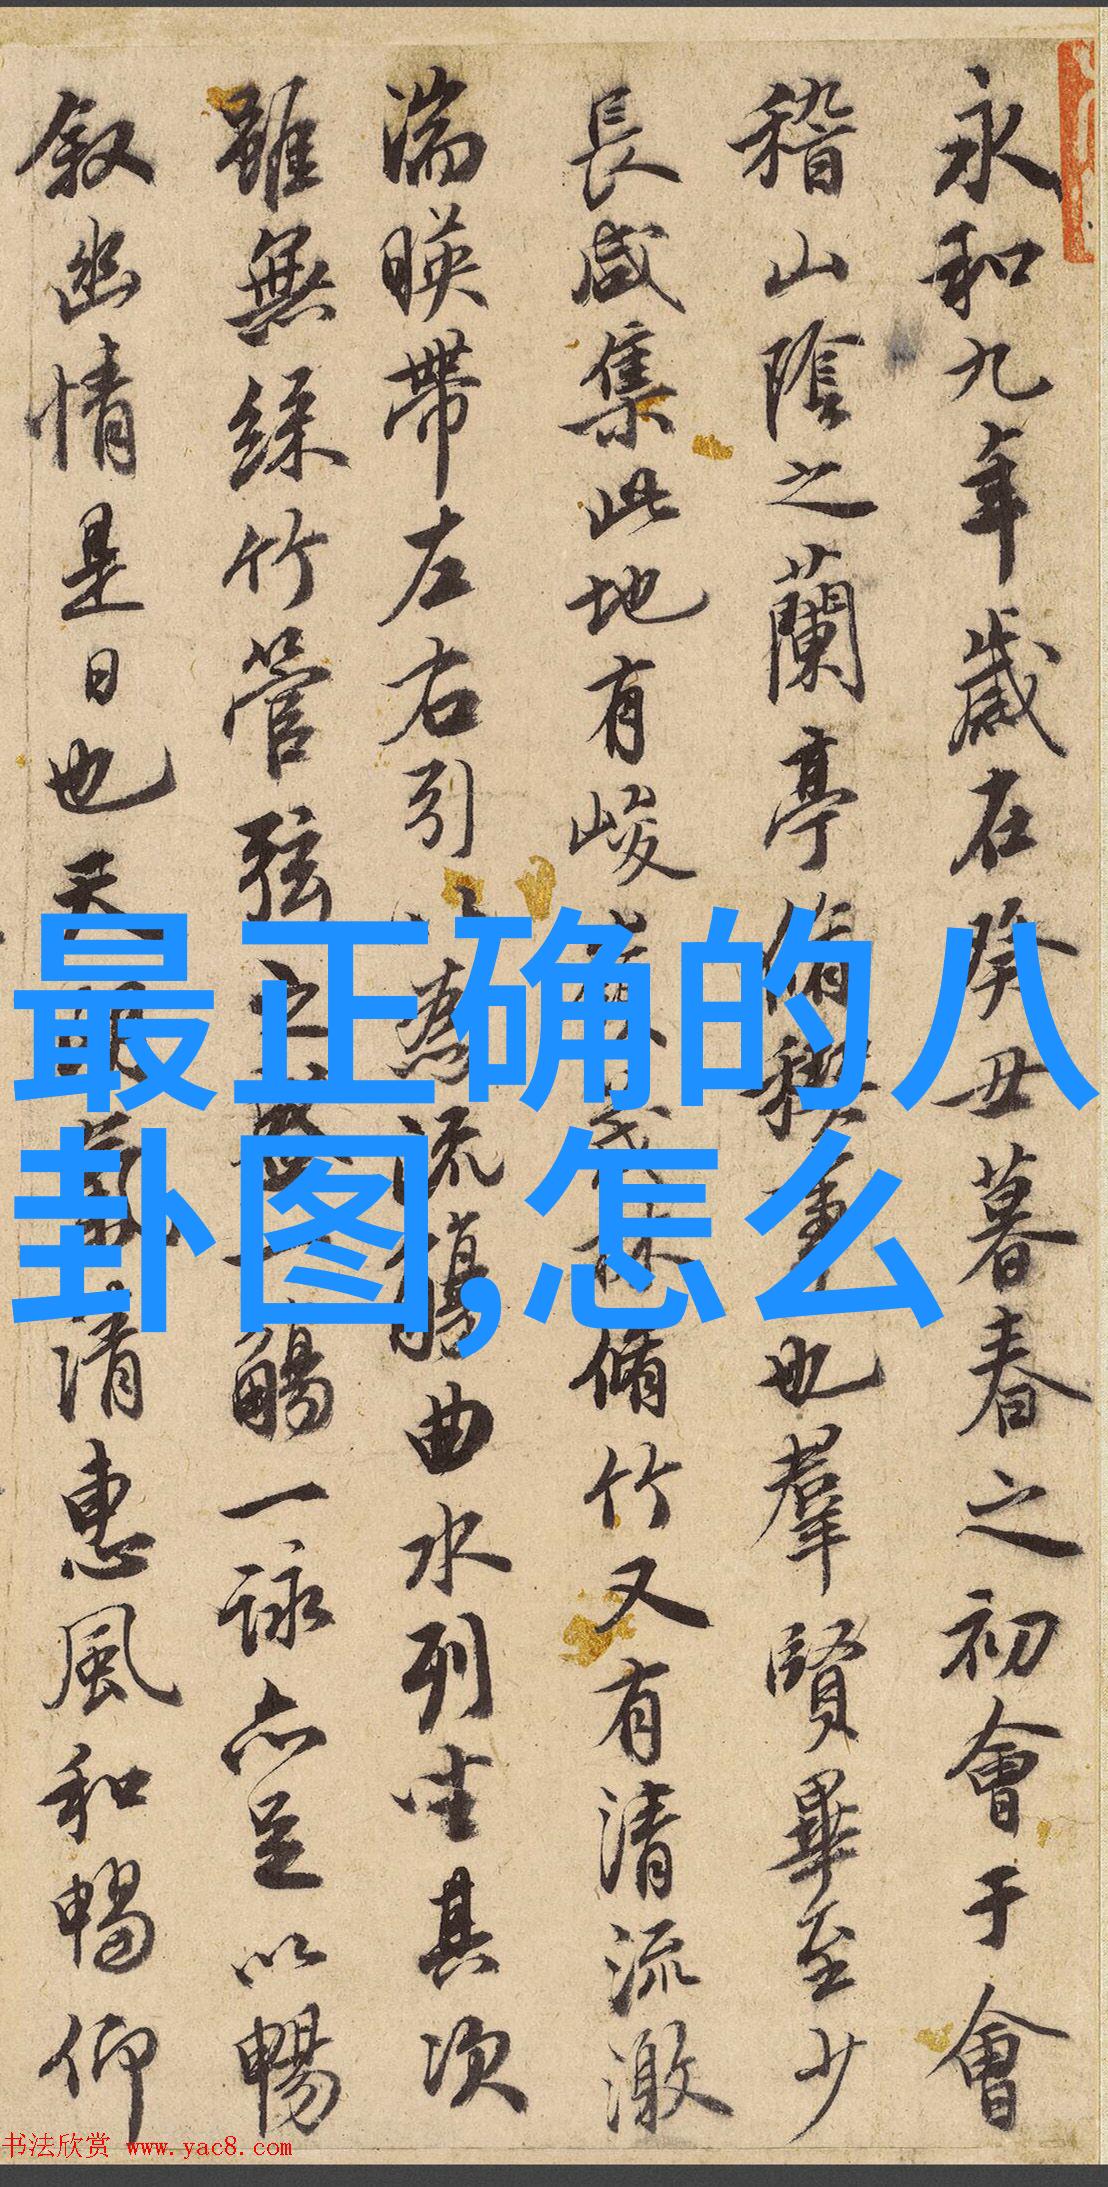 永和九年歲在癸丑暮春之初會于會
稽山陰之蘭亭脩稧事也羣賢畢至少
長咸集此地有峻領茂林脩竹又有清流激
湍暎帶左右引以為流觴曲水列坐其次
雖無絲竹管弦之盛一觴一詠亦足以暢
叙幽情是日也天朗氣清惠風和暢仰
最正确的八
卦图,怎么
书法欣赏 www.yac8.com